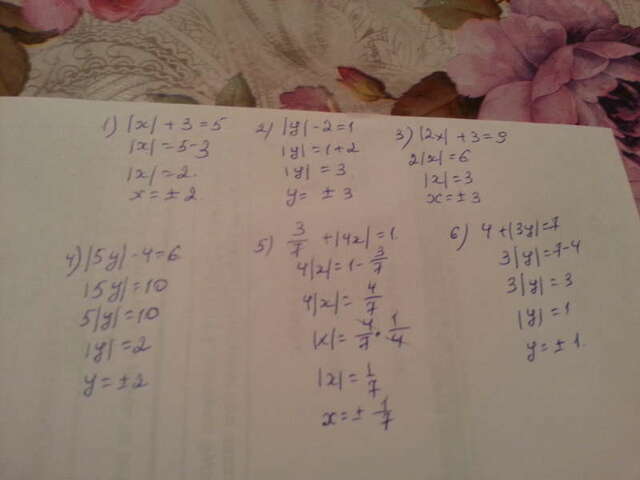 1) |x| + 3 = 5
|x| = 5-3
|x| = 2.
x = ± 2.
2) |y| - 2 = 1
|y| = 1+2
|y| = 3.
y = ± 3
3) |2x| + 3 = 9
2|x| = 6
|x| = 3
x = ± 3
4) |5y| - 4 = 6
|5y| = 10
5|y| = 10
|y| = 2
y = ± 2
5) 3/7 + |4x| = 1
4|x| = 1 - 3/7
4|x| = 4/7
|x| = 4/7 · 1/4
|x| = 1/7
x = ± 1/7
6) 4 + |3y| = 7
3|y| = 7-4
3|y| = 3
|y| = 1
y = ± 1.